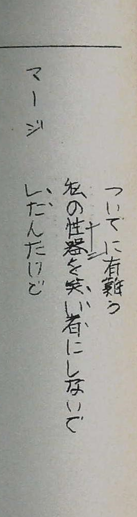 ついでに有難う
私の性器を笑い者にしないで
マージ いたんだけど